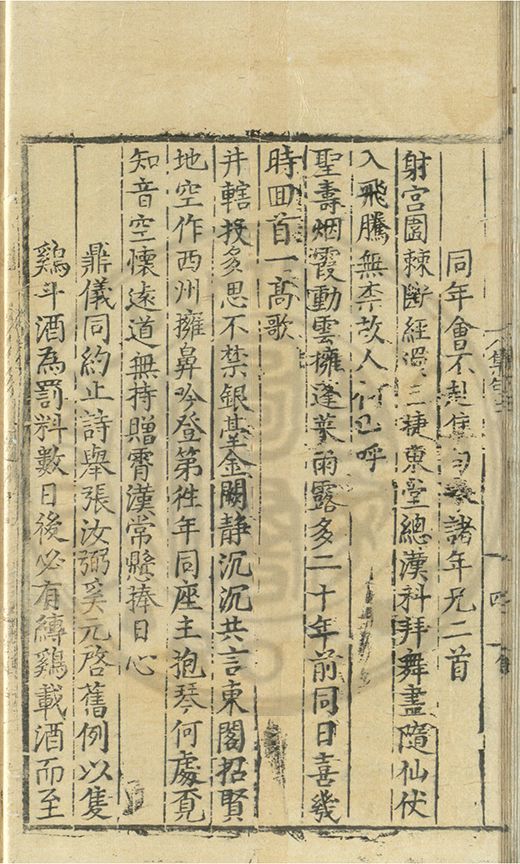 同年會不赴集句諸年兄二首
射宮園棘斷經過三捷東堂總漢科拜舞盡隨仙仗
入飛騰無柰故人何已呼
聖壽烟霞動雲擁蓬萊雨露多二十年前同日喜幾
時囬首一髙歌
井轄投多思不禁銀臺金闕静沉沉共言東閣招賢
地空作西州擁鼻吟登第徃年同座主抱琴何處覔
知音空懷遠道無持贈霄漢常懸捧日心
鼎儀同約止詩舉張汝弼奚元啓舊例以隻
鷄斗酒為罰料數日後必有縛鷄載酒而至